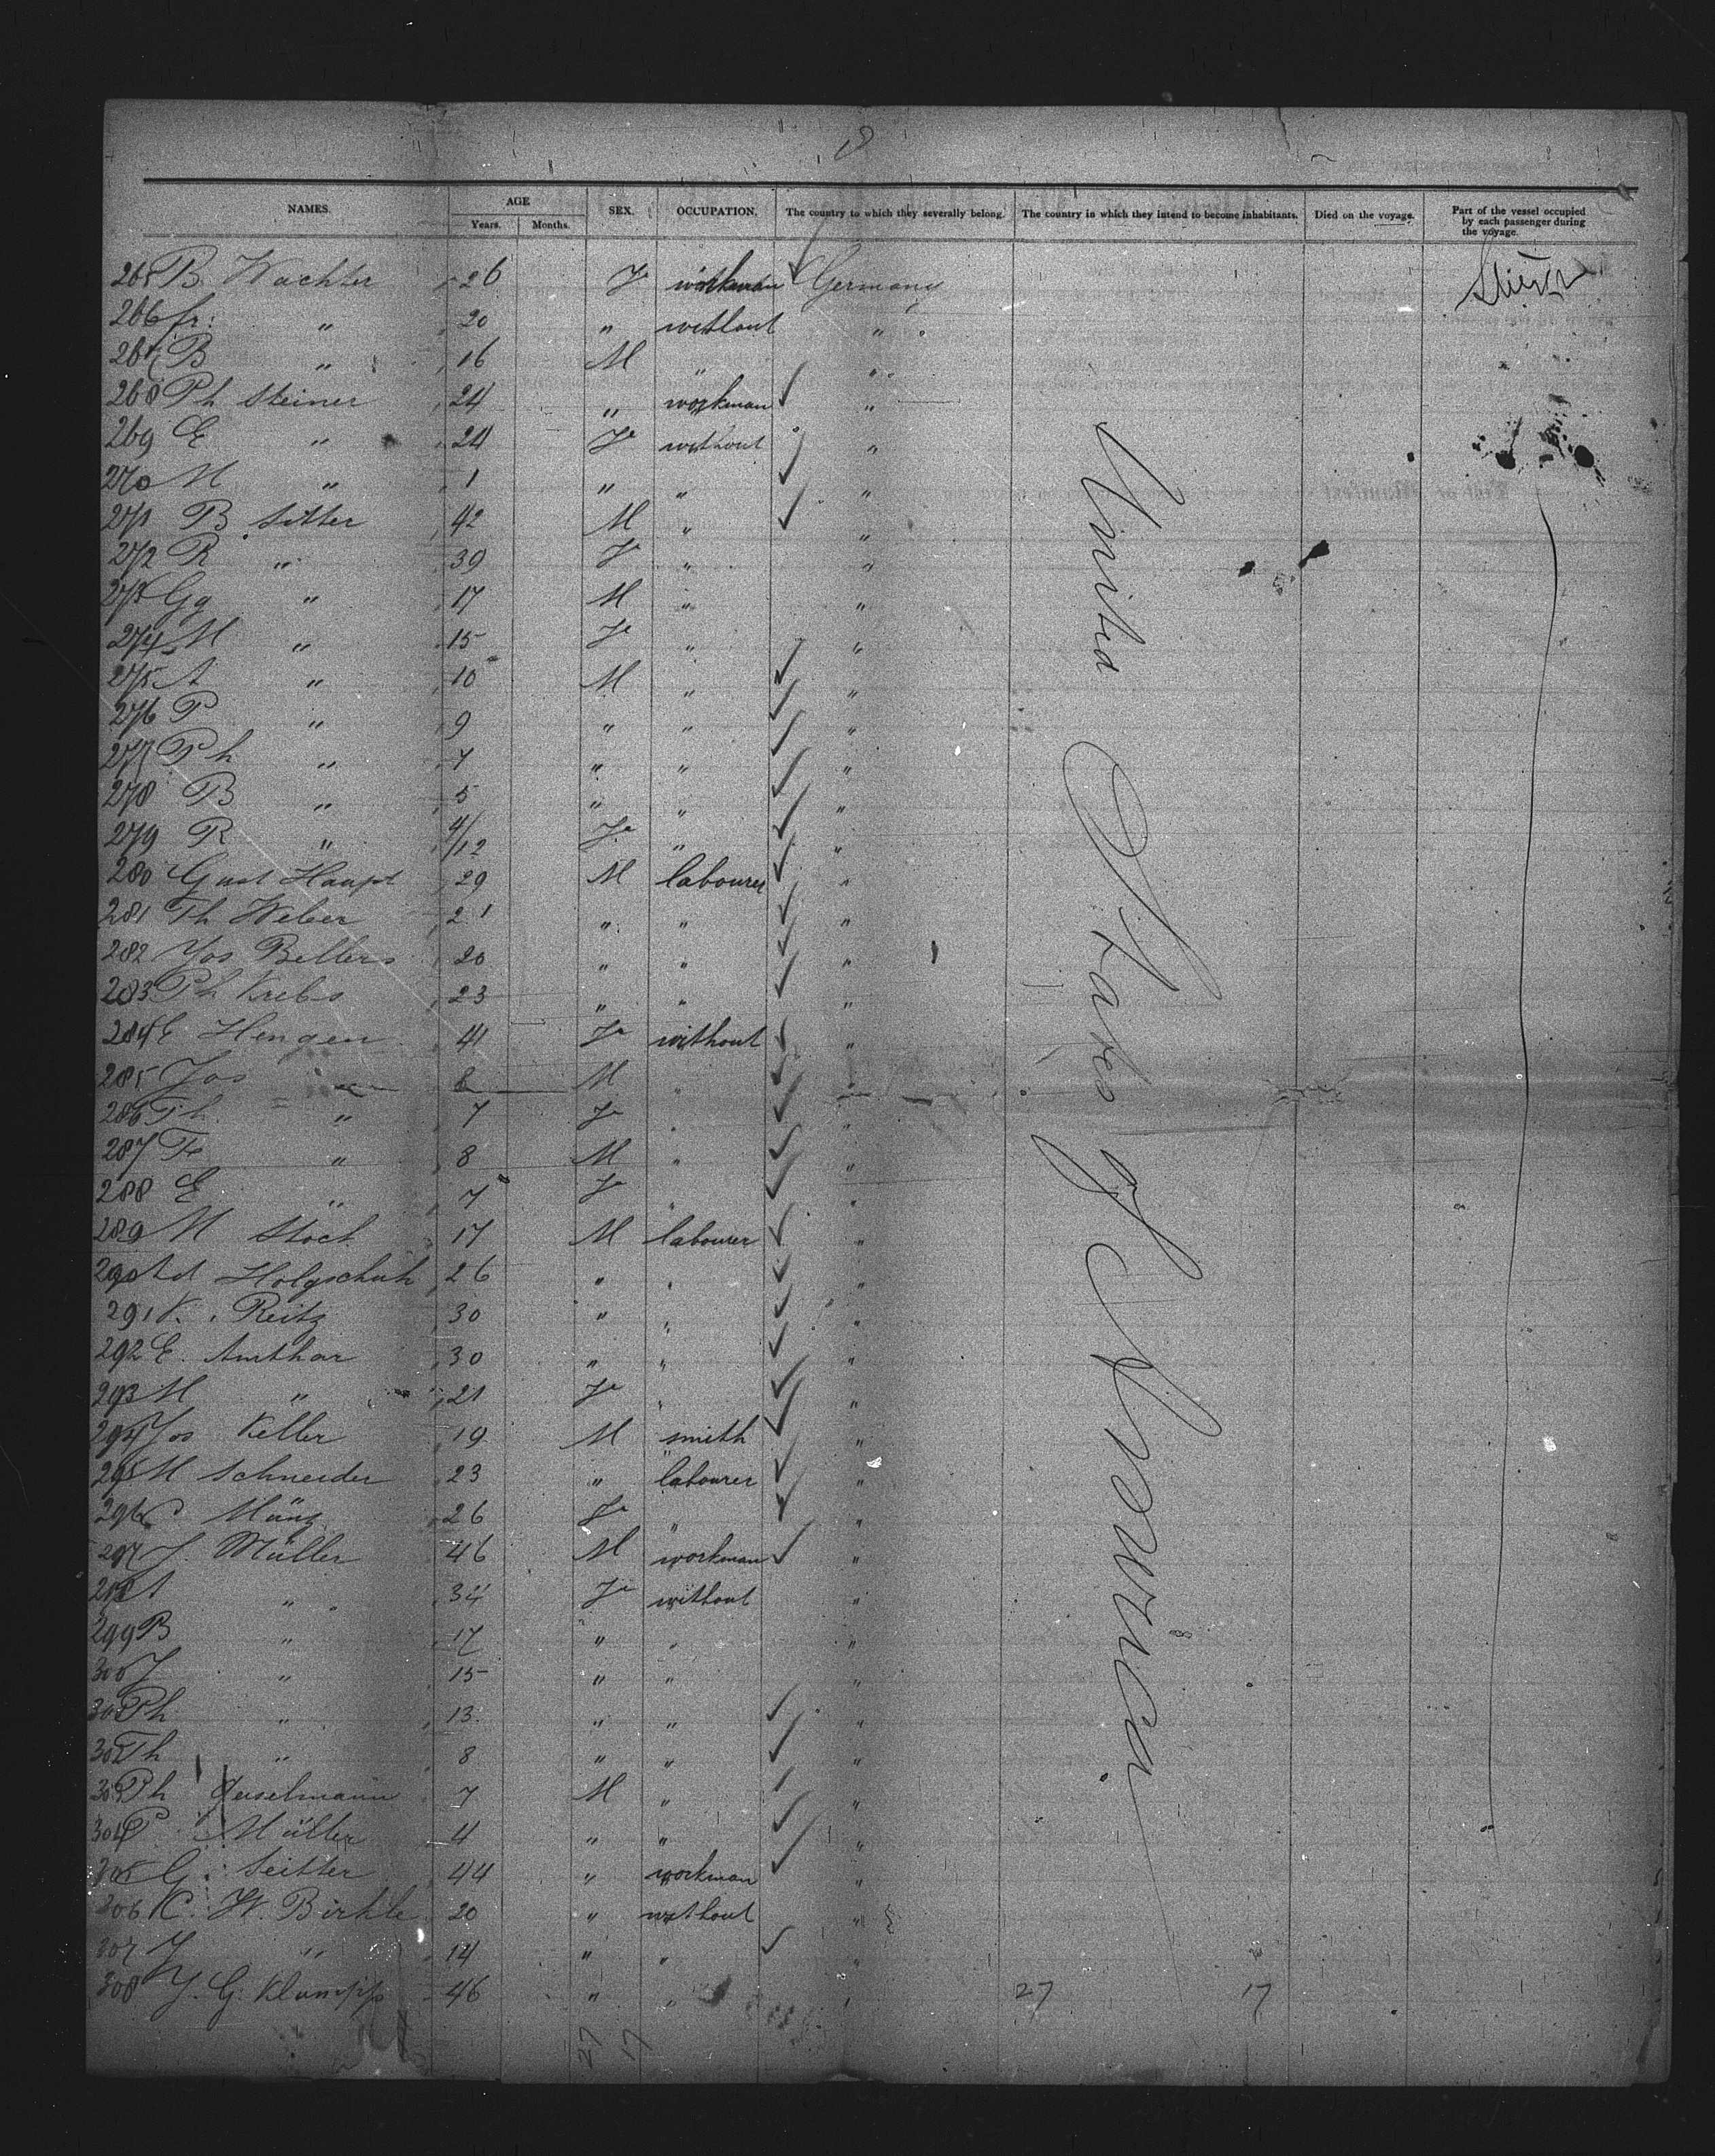 8
NAMES. AGE SEX. OCCUPATION. The country to which they severally belong. The country in which they intend to become inhabitants. Died on the voyage. Part of the vessel occupied by each passenger during the voyage.
Years. Months.
265 B. Wachter 26 F workman Germany
266 fr: " 20 " without "
267 B " 16 M " "
268 Ph Steiner 24 " workman "
269 E " 24 F without "
270 M " 1 " " "
271 B Sitter 42 M " "
272 R " 39 F " "
273 Gg " 17 M " "
274 M " 15 F " "
275 A " 10 M " "
276 P " 9 " " "
277 Ph " 7 " " "
278 B " 5 " " "
279 R " 4/12 F " "
280 Gust Haupt 29 M labourer "
281 Th Weber 21 " " "
282 Jos Bellers 20 " " "
283 Ph Krebs 23 " " "
284 E Hengen 41 F without "
285 Jos " M " "
286 Th " 7 F " "
287 Fr " 8 M " "
288 E " 7 F " "
289 M Stock 17 M labourer "
290 Ad Holzschuh 26 " " "
291 K. Reitz 30 " " "
292 E. Amthor 30 " " "
293 M " 21 F " "
294 Jos Keller 19 M smith "
295 M Schneider 23 " labourer "
296 C. Münz 26 F " "
297 J. Müller 46 M workman "
298 A " 34 F without "
299 B " 17 " " "
300 J " 15 " " "
301 Ph " 13 " " "
302 Th " 8 " " "
303 Ph Geiselmann 7 M " "
304 P Müller 4 " " "
305 G. Seitter 44 " workman "
306 K. W. Birkle 20 " without "
307 J " 14 " " "
308 J. G. Klumpp 46 " " "
United States of America
27 17
27 17